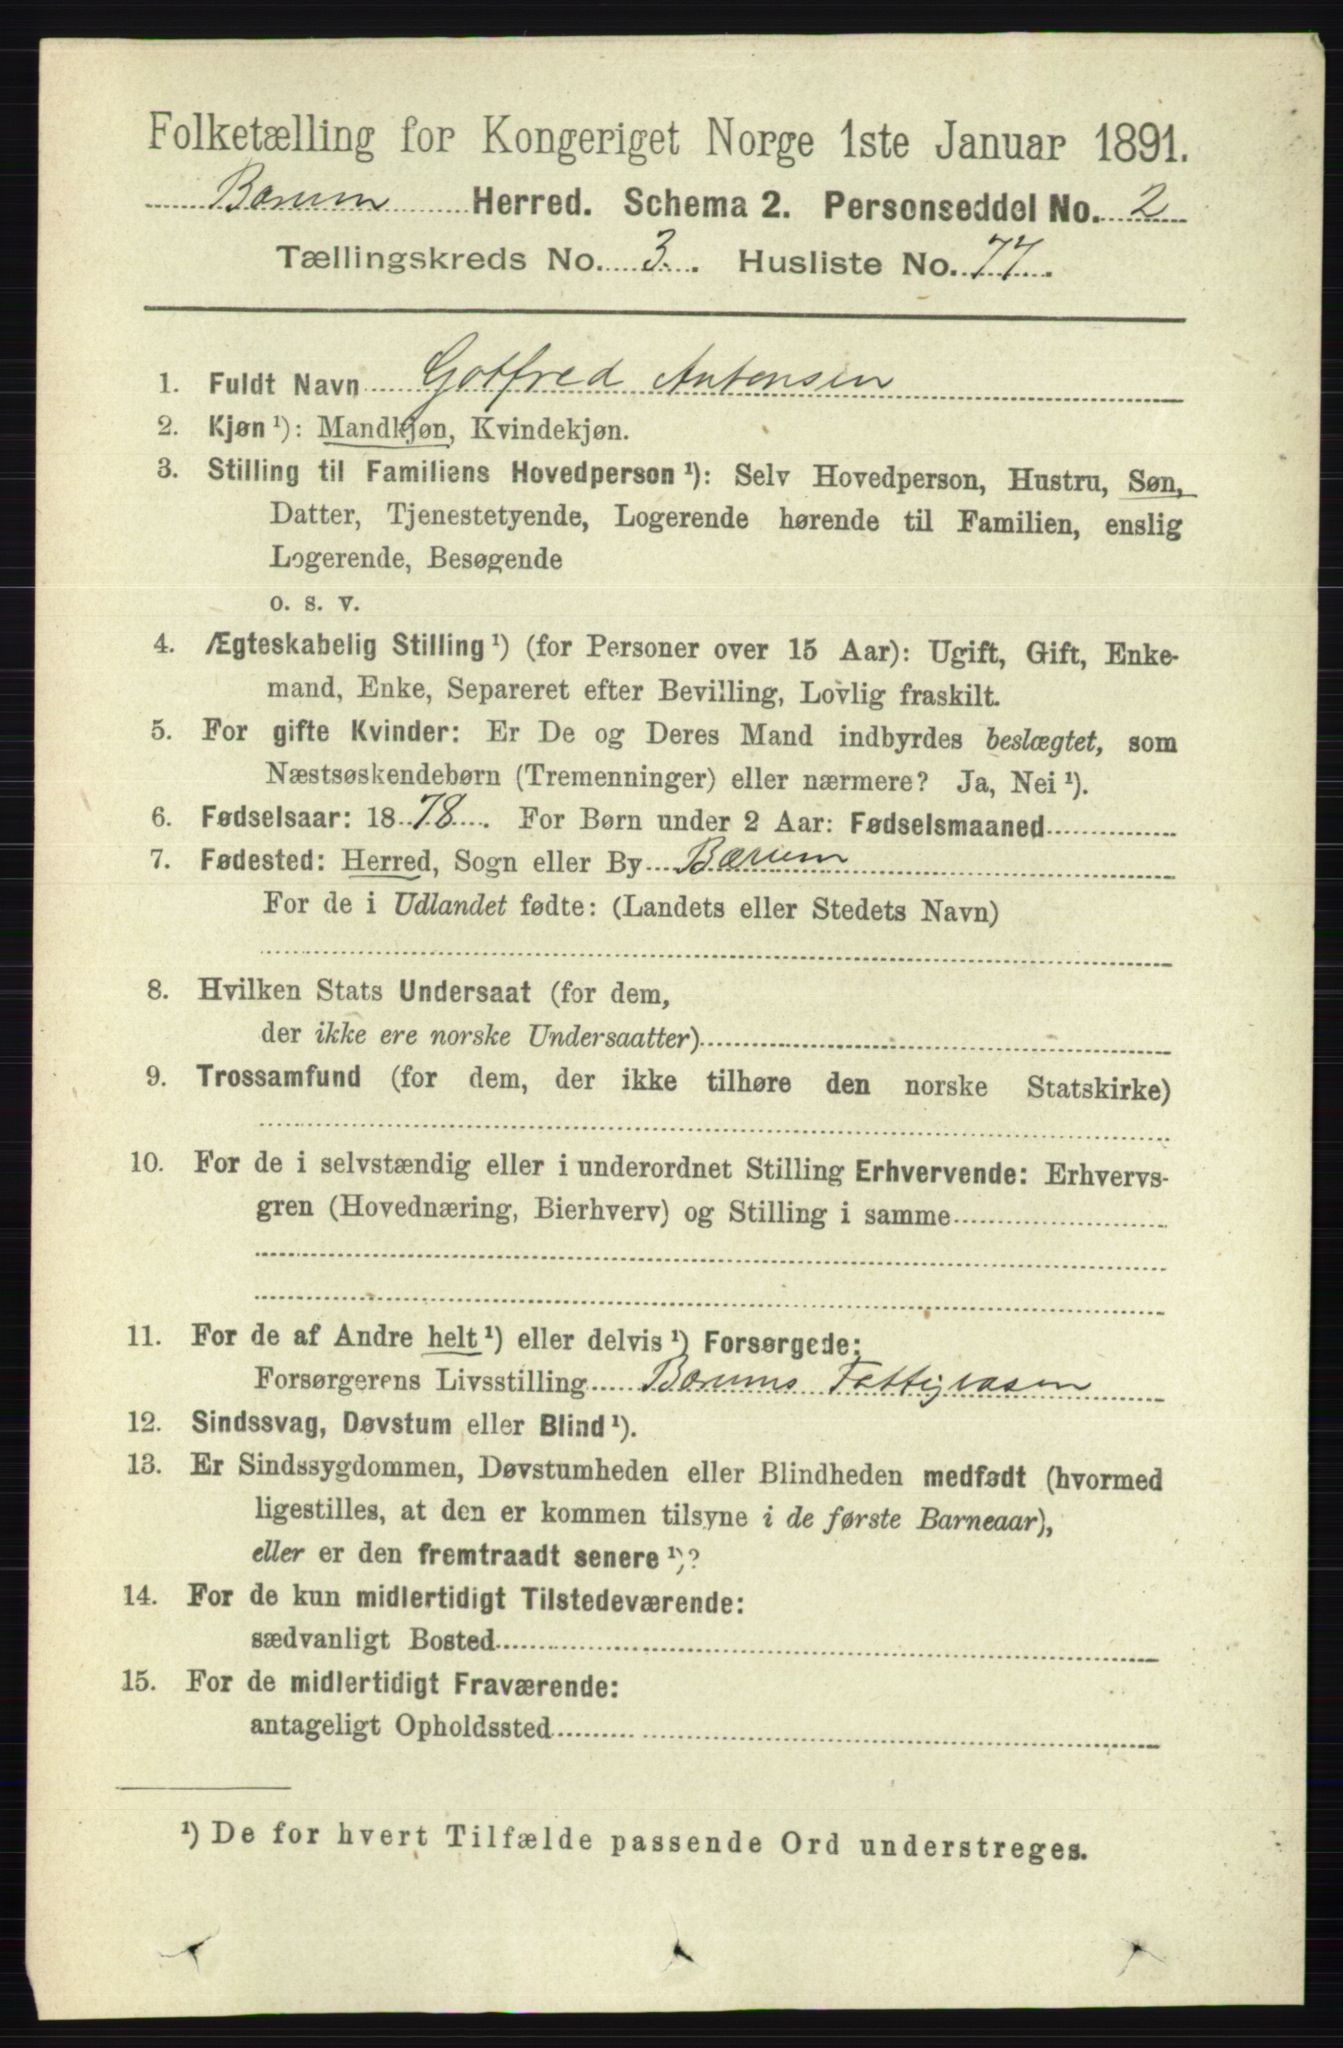 Folketælling for Kongeriget Norge 1ste Januar 1891.
Bærum Herred. Schema 2. Personseddel No. 2
Tællingskreds No. 3. Husliste No. 77.
1. Fuldt Navn Gotfred Antonsen
2. Kjøn ¹): Mandkjøn, Kvindekjøn.
3. Stilling til Familiens Hovedperson ¹): Selv Hovedperson, Hustru, Søn,
Datter, Tjenestetyende, Logerende hørende til Familien, enslig
Logerende, Besøgende
o. s. v.
4. Ægteskabelig Stilling ¹) (for Personer over 15 Aar): Ugift, Gift, Enke-
mand, Enke, Separeret efter Bevilling, Lovlig fraskilt.
5. For gifte Kvinder: Er De og Deres Mand indbyrdes beslægtet, som
Næstsøskendebørn (Tremenninger) eller nærmere? Ja, Nei ¹).
6. Fødselsaar: 1878. For Børn under 2 Aar: Fødselsmaaned
7. Fødested: Herred, Sogn eller By Bærum
For de i Udlandet fødte: (Landets eller Stedets Navn)
8. Hvilken Stats Undersaat (for dem,
der ikke ere norske Undersaatter)
9. Trossamfund (for dem, der ikke tilhøre den norske Statskirke)
10. For de i selvstændig eller i underordnet Stilling Erhvervende: Erhvervs-
gren (Hovednæring, Bierhverv) og Stilling i samme
11. For de af Andre helt ¹) eller delvis ¹) Forsørgede:
Forsørgerens Livsstilling Bærums Fattigvæsen
12. Sindssvag, Døvstum eller Blind ¹).
13. Er Sindssygdommen, Døvstumheden eller Blindheden medfødt (hvormed
ligestilles, at den er kommen tilsyne i de første Barneaar),
eller er den fremtraadt senere ¹)?
14. For de kun midlertidigt Tilstedeværende:
sædvanligt Bosted
15. For de midlertidigt Fraværende:
antageligt Opholdssted
¹) De for hvert Tilfælde passende Ord understreges.